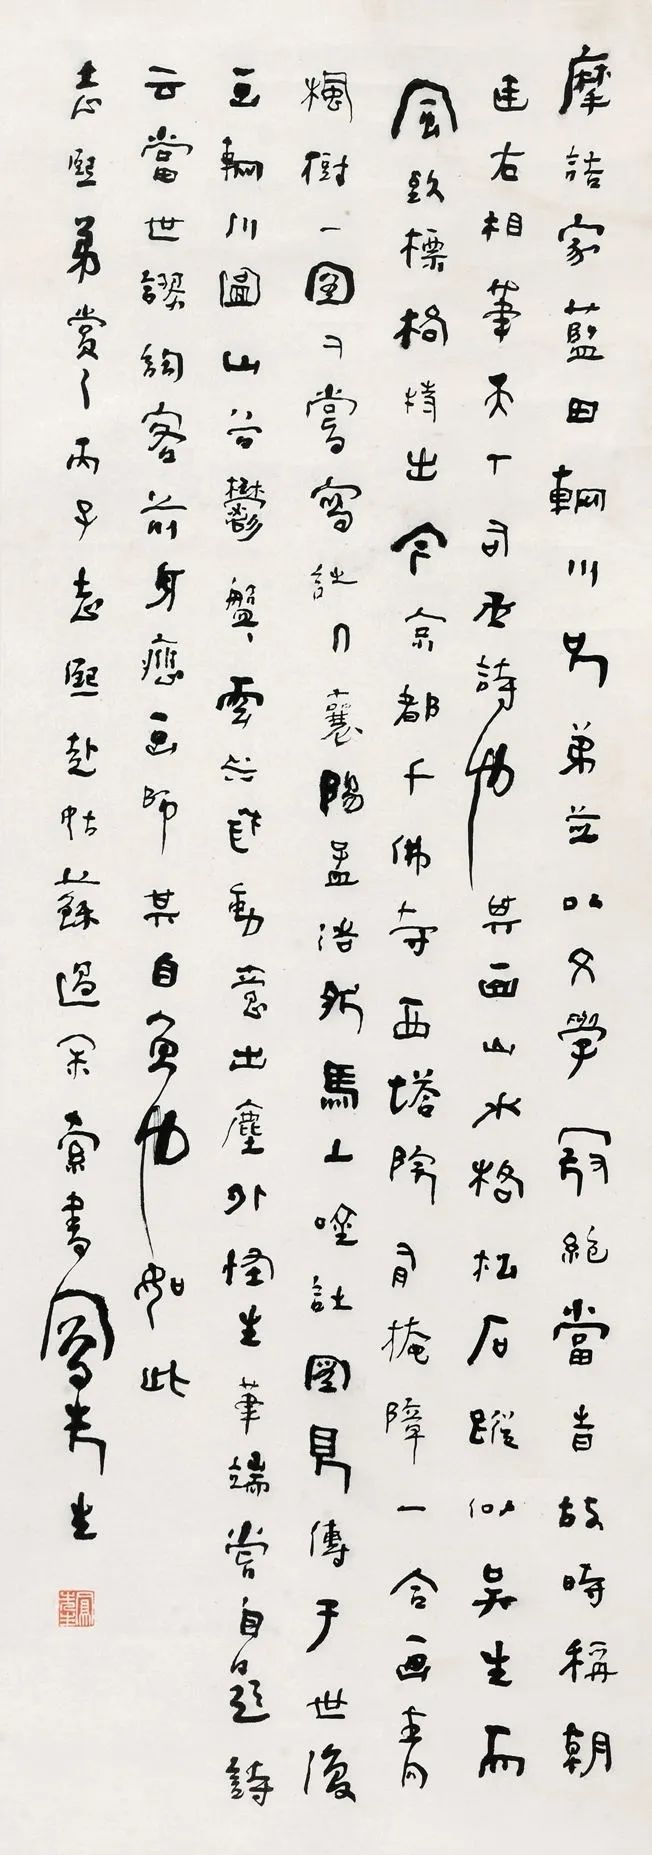 摩詰家藍田輞川兄弟並以文學冠絕當旹故時稱朝
廷左相筆天下右丞詩也其画山水格松石蹤似吳生而
風致標格特出今京都千佛寺西塔院有掩障一合画青
楓樹一圖又嘗寫詩人襄陽孟浩然馬上吟詩圖見傳于世復
画輞川圖山谷鬱盤雲水飛動意出塵外怪生筆端嘗自題詩
云當世謬詞客前身應画師其自負也如此
志熙弟賞之丙子志熙赴姑蘇過余索書鳳先生
鳳先生